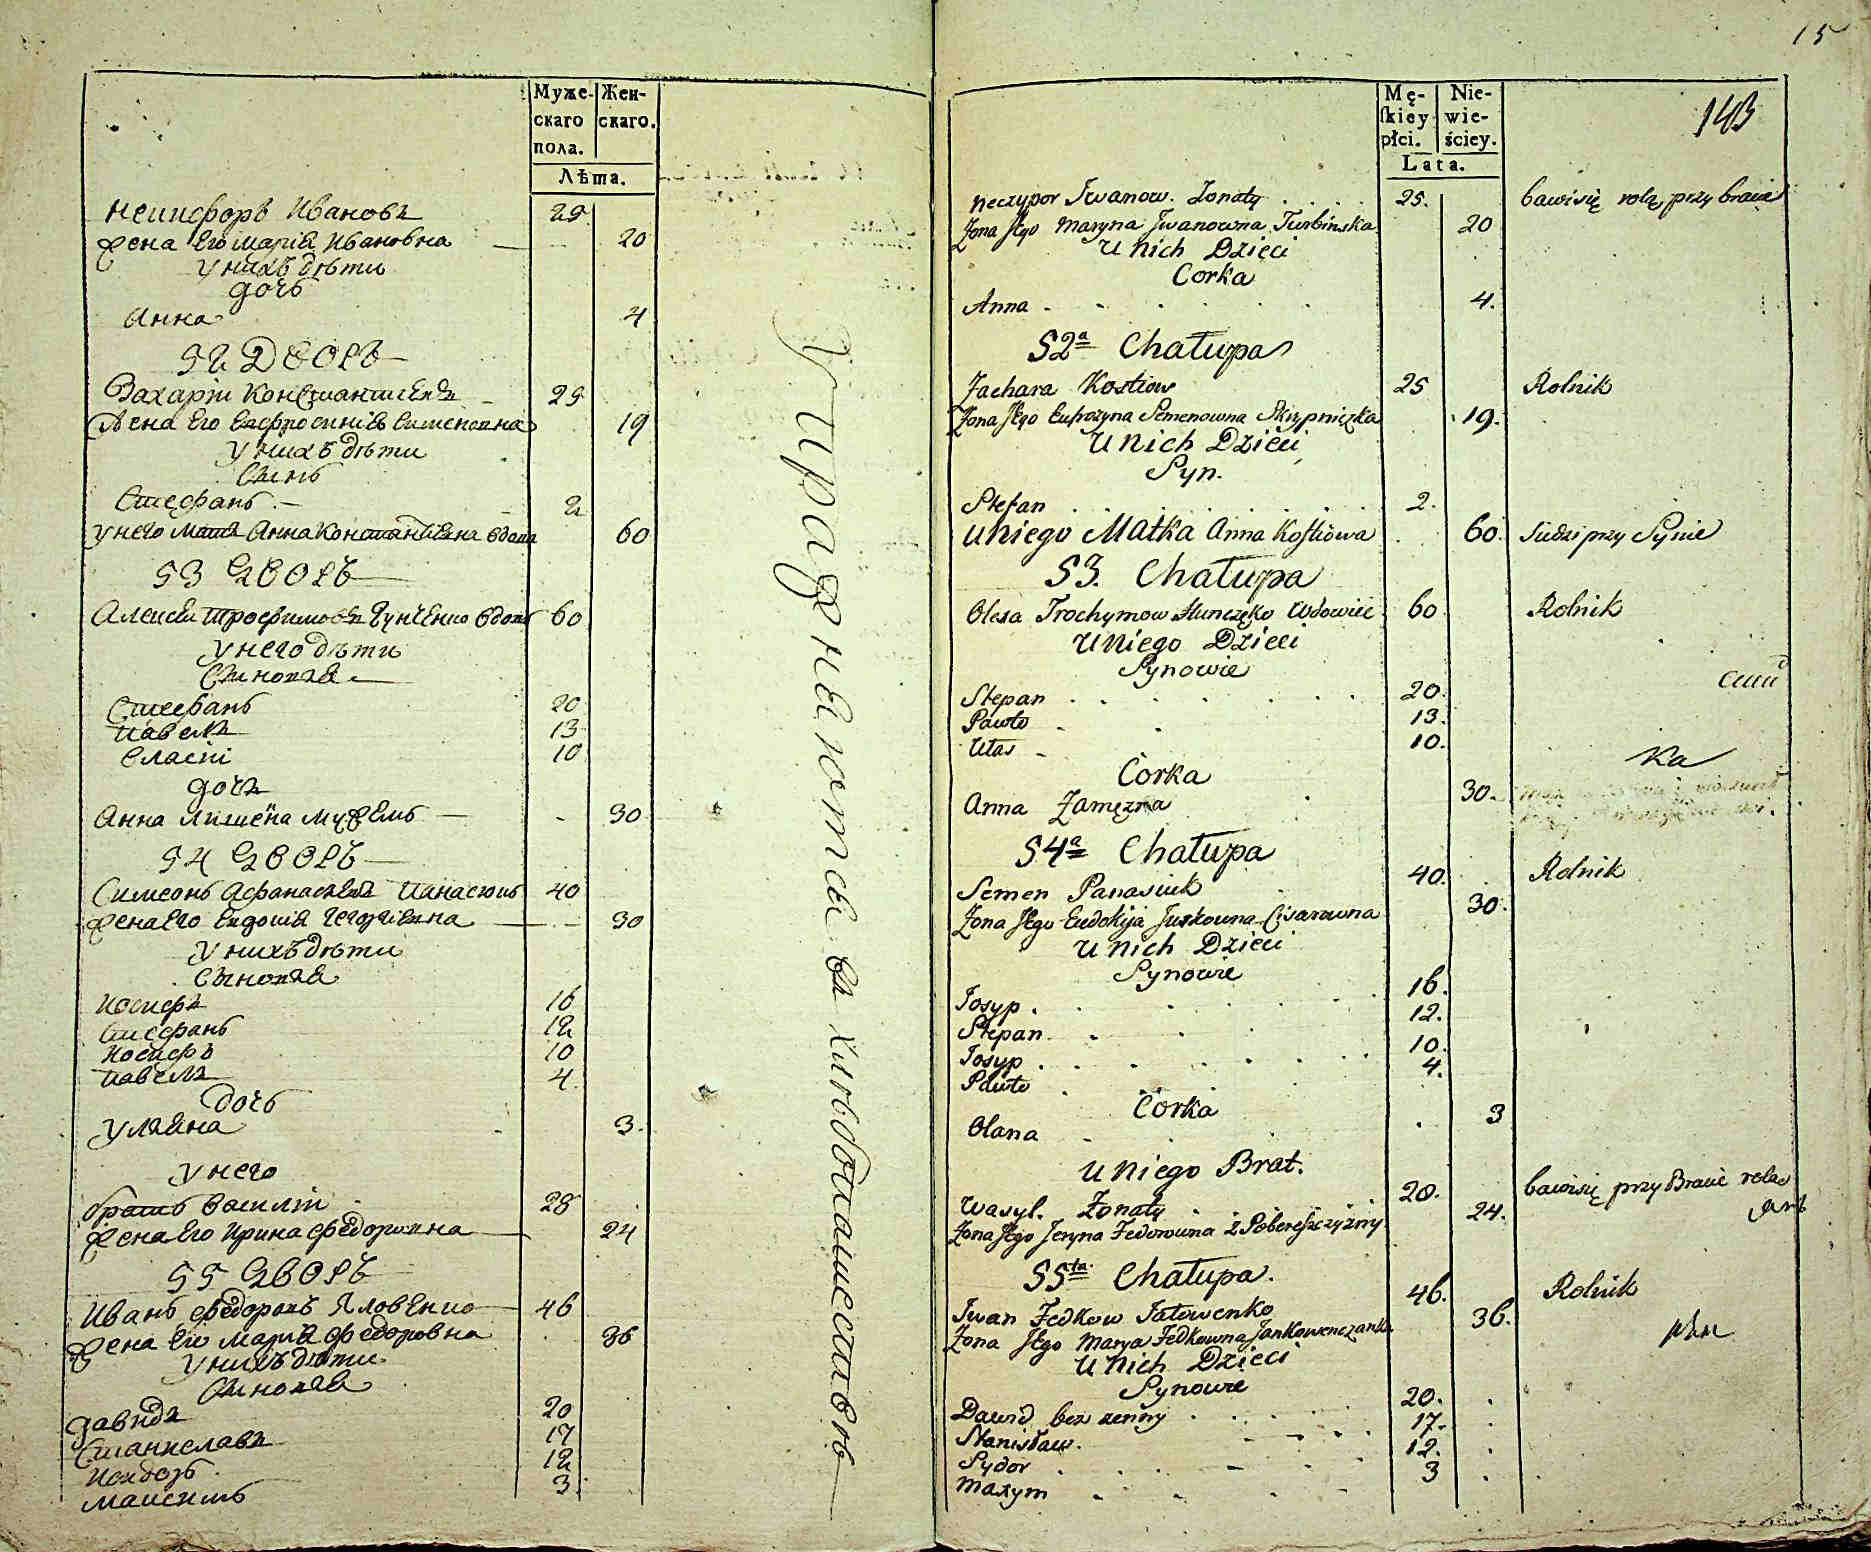 Муже-
скаго
пола.
Жен-
скаго.
Лѣта.
Никифоръ Ивановъ 25
Жена Его Марія Ивановна 20
У нихъ дѣти
дочь
Анна 4
52 Дворъ
Захарій Константиневъ 25
Жена Его Евфросинія Симеоновна 19
У нихъ дѣти
Сынъ
Стефанъ 2
У него Мать Анна Константіевна вдова 60
53 Дворъ
Алексѣй Трофимовъ вдовъ 60
У него дѣти
Сыновья
Стефанъ 20
Павелъ 13
Власій 10
дочь
Анна мужемъ 30
54 Дворъ
Симеонъ Афанасіевъ Панасюкъ 40
Жена Его Евдокія Георгіевна 30
У нихъ дѣти
Сыновья
Иосифъ 16
Стефанъ 12
Иосифъ 10
Павелъ 4
дочь
Уляна 3
У него
братъ Василій 28
Жена Его Ирина Федоровна 24
55 Дворъ
Иванъ Федоровъ Яловенко 46
Жена Его Марія Федоровна 36
У нихъ дѣти
Сыновья
Давидъ 20
Станиславъ 17
Исидоръ 12
Максимъ 3
Упражняются въ хлѣбопашествѣ
15
Mę-
skiey
płci.
Nie-
wie-
ściey.
Lata.
143
Neczypor Iwanow. Żonaty 25. bawi się rolą przy bracie
Żona Jego Maryna Iwanowna Turbińska 20
U nich Dzieci
Corka
Anna 4.
52a Chałupa
Zachara Kostiow 25 Rolnik
Żona Jego Eufrozyna Semenowna Skrypniczka 19.
U nich Dzieci
Syn.
Stefan 2.
U niego Matka Anna Kostiowa 60. Siedzi przy Synie
53. Chałupa
Olexa Trochymow Hunczęko Wdowiec 60 Rolnik
U niego Dzieci
Synowie
Stepan 20.
Pawło 13.
Ułas 10.
Corka
Anna Zamęzna 30.
54a Chałupa
Semen Panasiuk 40. Rolnik
Żona Jego Eudokija Jurkowna Cisarowna 30.
U nich Dzieci
Synowie
Josyp 16.
Stepan 12.
Josyp 10.
Pawło 4.
Corka
Olana 3
U niego Brat.
Wasyl. Żonaty 28. bawi się przy Bracie rolą
Żona Jego Jeryna Fedorowna z Pobereszczyzny 24.
55ta Chałupa.
Iwan Fedkow Jałowenko 46. Rolnik
Żona Jego Marya Fedkowna Jankowenczanka 36.
U nich Dzieci
Synowie
Dawid bez zenny 20.
Stanisław. 17.
Sydor 12.
Maxym 3